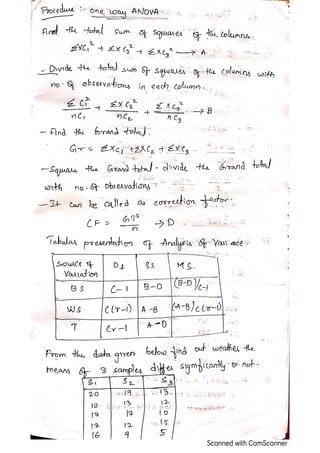 Procedure :- one way ANOVA
Find the total sum of squares of the columns.
ΣXC₁² + ΣXC₂² + ΣXC₃² → A
- Divide the total sum of squares of the columns with
no. of observations in each column.
ΣC₁²/nC₁ + ΣXC₂²/nC₂ + ΣXC₃²/nC₃ → B
- Find the Grand total.
GT = ΣXC₁ + ΣXC₂ + ΣXC₃
- Square the Grand total - divide the Grand total
with no. of observations
- It can be called as correction factor.
CF = GT²/n → D
Tabular presentation of Analysis of Variance:
Source of Variation D.f SS M.S.
BS C-1 B-D (B-D)/C-1
WS C(r-1) A-B (A-B)/C(r-1)
T Cr-1 A-D
From the data given below find out weather the
means of 3 samples differ significantly or not.
S₁ S₂ S₃
20 19 13
10 13 12
17 17 10
17 12 15
16 9 5
Scanned with CamScanner